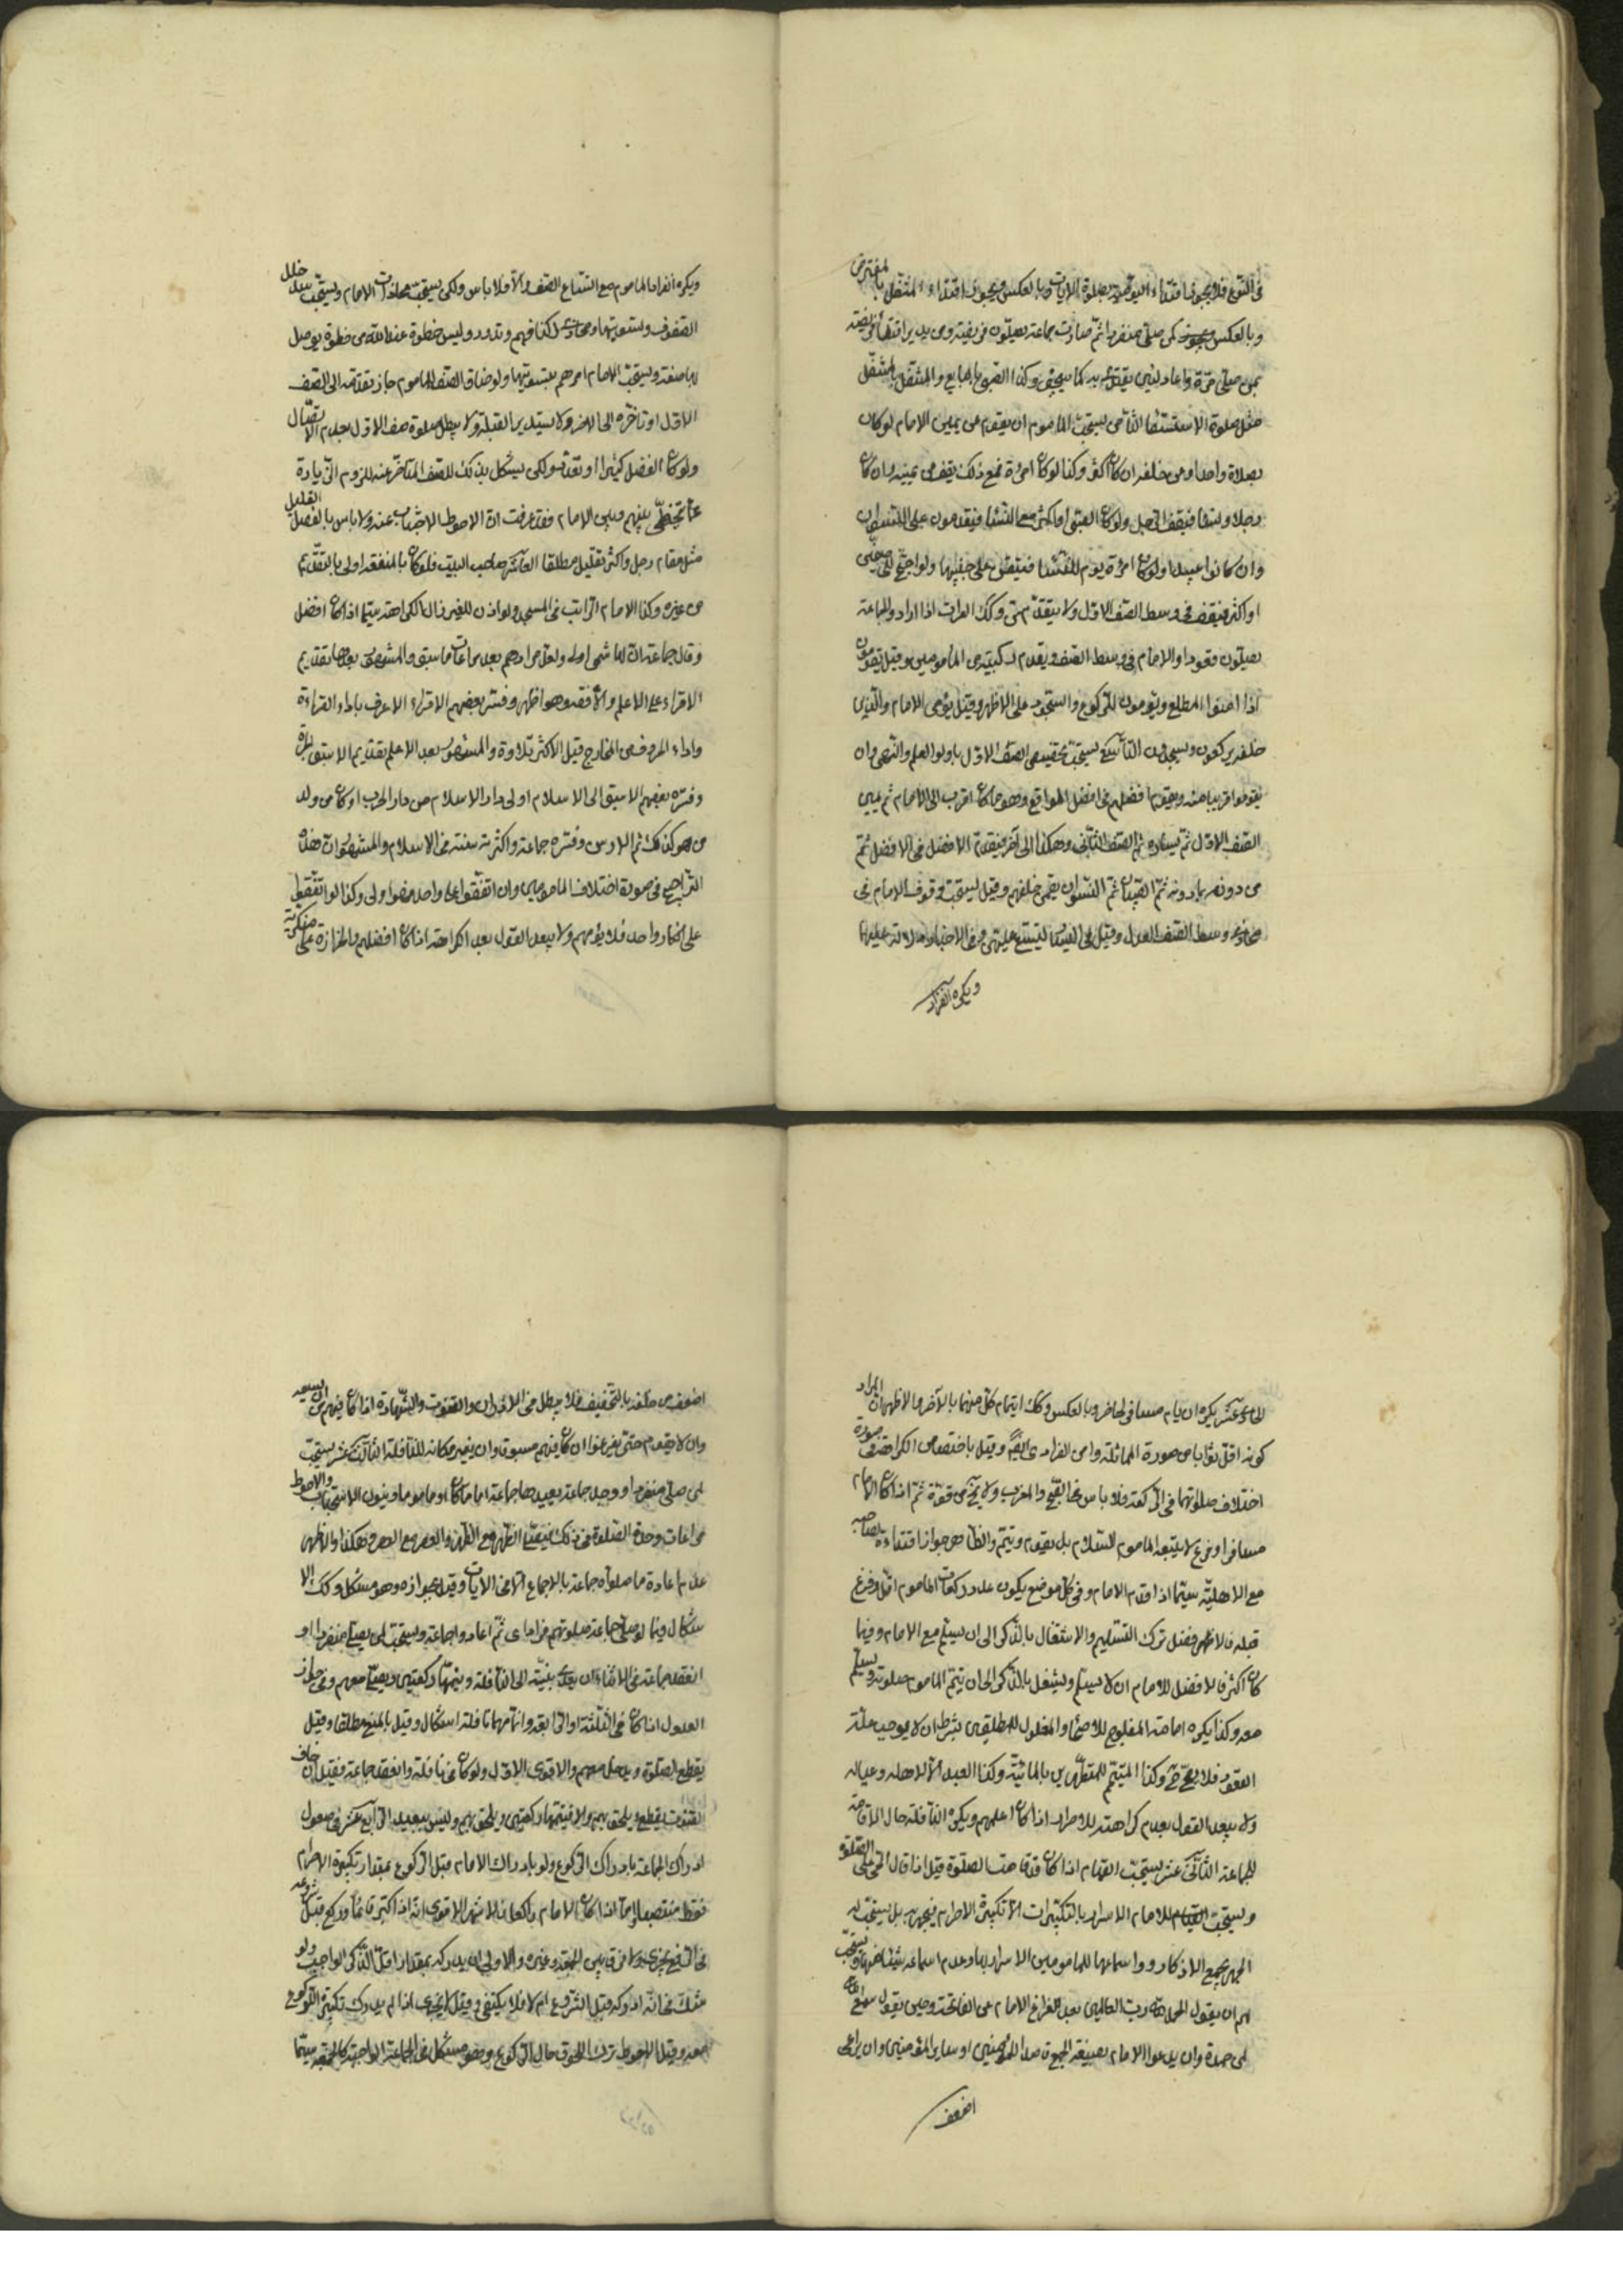 في النوع فلا يجوز اقتداء اليومية بصلوة الايات وبالعكس ويجوز اقتداء المتنفل بالمفترض
وبالعكس كمن صلى منفردا ثم صادف جماعة يصلون فريضة ومن يريد اقتضاء فريضته
بمن صلى مرة واعاد لمن يقتدى به كما سيجئ وكذا الصبي بالبالغ والمتنفل بالمتنفل
مثل صلوة الاستسقاء الثامن يستحب للماموم ان يقوم عن يمين الامام لو كان
رجلا واحدا ومن خلفه ان كان اكثر وكذا لو كان امرأة فمع ذلك يقف عن يمينه وان كان
رجلا ونساء فيقف الرجل ولو كان الصبى اواكثر مع النساء فيقدمون على النسوان
وان كانوا عبيدا ولو كان امرأة يؤم للنساء فيقفن على جنبيها ولو اجتمع
او اكثر فيقف في وسط الصف الاول ولا يتقدمهن وكك العراة اذا ارادوا الجماعة
يصلون قعودا والامام في وسط الصف ويقدم ركبتيه من المامومين وقيل يقومون
اذا امنوا المطلع ويؤمون للركوع والسجود على الاظهر وقيل يؤمى الامام والذين
خلفه يركعون ويسجدون التاسع يستحب تخصيص الصف الاول باولو العلم والنهى وان
يقوموا قريبا منه ويقوم افضلهم في افضل المواقع وهو ما كان اقرب الى الامام ثم يمين
الصف الاول ثم يساره ثم الصف الثاني وهكذا الى آخر فيقدم الافضل في الافضل ثم
من دونهم ثم الصبيان ثم النسوان يقمن خلفهم وقيل يستحب وقوف الامام في
وسط الصف العدل وقيل في اليسار ليتسع ميمنتهم وفي الاخبار دلالة عليهما
ويكره انفراد
ويكره انفراد الماموم مع اتساع الصف والا فلا باس ولكن يستحب محاذات الامام ويستحب سد خلل
الصفوف وتسويتها ومحاذات اكتافهم وتدور وليس خطوة عند الله من خطوة يوصل
بها صفه ويستحب للامام امرهم بتسويتها ولو ضاق الصف للماموم جاز تقدمه الى الصف
الاول او تاخره الى الاخر ولا يستدبر القبلة ولا يبطل صلوة صف الاول بعدم الاتصال
ولو كان الفصل كثيرا او تعدد ولكن يشكل بذلك للصف المتاخر عنه للزوم الزيادة
عما يتخطى بينهم وبين الامام فقد عرفت ان الاحوط الاجتناب عنه ولا باس بالفصل القليل
مثل مقام رجل واكثر بقليل مطلقا العاشر صاحب البيت فلو كان بالمنفعة اولى بالتقديم
من غيره وكذا الامام الراتب في المسجد ولو اذن للغير زال الكراهة سيما اذا كان افضل
وقال جماعة ان الهاشمى اولى ولعل مرادهم بعد مراعات ما سبق والمشهور بعدها تقديم
الاقراء على الاعلم والافقه وهو اظهر وفسر بعضهم الاقراء الاعرف باداء القراءة
واداء الحروف من المخارج قيل الاكثر تلاوة والمشهور بعد الاعلم تقديم الاسبق هجرة
وفسره بعضهم الاسبق الى الاسلام او الى دار الاسلام من دار الحرب او كان من ولد
من هو كذلك ثم الاسن وفسره جماعة واكثرية سنه في الاسلام والمشهور ان هذا
التراجيح في صورة اختلاف المامومين وان اتفقوا على واحد فهو اولى وكذا لو اتفقوا
على انكار واحد فلا يؤمهم ولا يبعد القول بعد الكراهة اذا كان افضلهم والحزازة على منكريه
الحادى عشر يكره ان يام مسافر لحاضر وبالعكس وكك ايتمام كل منهما بالآخر والاظهر ان المراد
كونه اقل ثوابا من صورة المماثلة وامن الفرادى افضل وقيل باختصاص الكراهة في صورة
اختلاف صلوتهما في الركعة فلا باس في الصبح والمغرب ولا يخ من قوة ثم اذا كان الامام
مسافرا وفرغ لا يتبعه الماموم للسلام بل يقوم ويتم والظاهر جواز اقتداءه بصاحبه
مع الاهلية سيما اذا قدم الامام وفي كل موضع يكون عدد ركعات الماموم اقل وفرغ
قبله فالافضل ترك التسليم والاشتغال بالذكر الى ان يسلم مع الامام وفيما
كان اكثر فالافضل للامام ان لا يسلم ويشتغل بالذكر الى ان يتم الماموم صلوته ويسلم
معه وكذا يكره امامة المفلوج للاصحاء والمغلول للمطلقين بشرط ان لا يوجب علته
القعود فلا يصح ح وكذا المتيمم للمتطهرين بالمائية وكذا العبد الا لاهله وعياله
ولا يبعد القول بعدم كراهته للاحرار اذا كان اعلمهم ويكره النافلة حال اقامة
للجماعة الثاني عشر يستحب القيام اذا كان قد قامت الصلوة قيل اذا قال حى على الصلوة
ويستحب للامام الاسرار بالتكبيرات الا تكبيرة الاحرام فيجهر به بل يستحب له
الجهر بجميع الاذكار واسماعها للمامومين الاسرار بها وعدم اسماعه شيئا منها ويستحب
لهم ان يقول الحمد لله رب العالمين بعد الفراغ الامام من الفاتحة وحين يقول سمع الله
لمن حمده وان يدعو الامام بصيغة الجمع قاصدا للمؤمنين او ساير المؤمنين وان يراعى
اضعف
اضعف من خلفه بالتخفيف فلا يبطل في الاذان والقنوت والشهادة اذا كان فيهم من ان يسعه
وان لا يقوم حتى يفرغوا ان كان فيهم مسبوق وان يغير مكانه للنافلة الثالث عشر يستحب
لمن صلى منفردا ووجد جماعة يعيدها جماعة اماما كان او ماموما وينوى الاستحباب والاحوط
مراعات وحدة الصلوة في ذلك فيصلى الظهر مع الظهر والعصر مع العصر وهكذا والاظهر
عدم اعادة ما صلوه جماعة بالاجماع الا في الايات وقيل بجوازه وهو مشكل وكك الا
شكال فيما لو صلى جماعة صلوتهم فرادى ثم اعادوا جماعة ويستحب لمن يصلى منفردا او
انعقد جماعة في الاثناء ان يعدل بنيته الى النافلة ويتمها ركعتين ويصلى معهم وفي جواز
العدول اذا كان في الثلثة او الرابعة واتمامها نافلة اشكال وقيل بالمنع مطلقا وقيل
يقطع الصلوة ويدخل معهم والاقوى الاول ولو كان في نافلة وانعقد جماعة فقيل ان خاف
الفوت يقطع ويلحق بهم والا فيتمها ركعتين ويلحق بهم وليس ببعيد الرابع عشر في حصول
ادراك الجماعة بادراك الركوع ولو بادراك الامام قبل الركوع بمقدار تكبيرة الاحرام
فقط منتصبا واما اذا كان الامام راكعا فالاشهر الاقوى انه اذا كبر قائما وركع قبل شروعه
في الرفع يجزى ولا فرق بين الجمعة وغيره والاولى ان يدركه بمقدار اقل الذكر الواجب ولو
شك في انه ادركه قبل الشروع ام لا فلا يكتفى وقيل لا يجزى اذا لم يدرك تكبيرة الركوع
معه وقيل الاحوط ترك اللحوق حال الركوع وهو مشكل في الجماعة الواجبة كالجمعة سيما